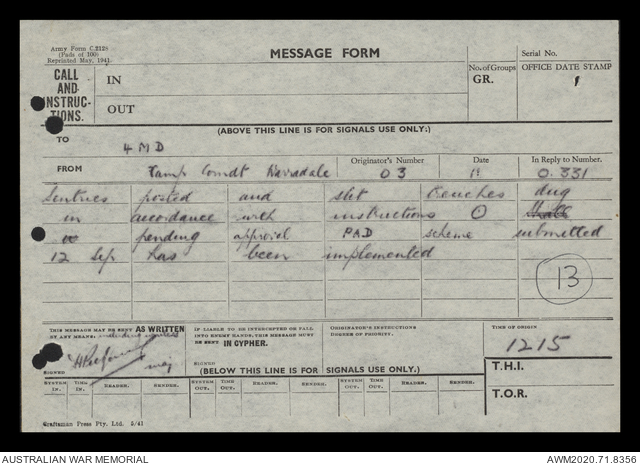 Army Form C.212
(Pads of 100)
Reprinted May, 1941.
MESSAGE FORM
Serial No.
CALL AND INSTRUC-TIONS.
IN
OUT
No. of Groups
GR.
OFFICE DATE STAMP
(ABOVE THIS LINE IS FOR SIGNALS USE ONLY.)
TO
4 M D
FROM
Camp Comdt
Originator's Number
03
Date
In Reply to Number.
O.331
Sentries posted and slit trenches dug
in accordance with instructions O
pending approval PAD scheme submitted
12 Sep has been implemented
13
THIS MESSAGE MAY BE SENT AS WRITTEN
BY ANY MEANS, including wireless
SIGNED
Maj
IF LIABLE TO BE INTERCEPTED OR FALL
INTO ENEMY HANDS, THIS MESSAGE MUST
BE SENT IN CYPHER.
SIGNED
ORIGINATOR'S INSTRUCTIONS
DEGREE OF PRIORITY.
TIME OF ORIGIN
1215
(BELOW THIS LINE IS FOR SIGNALS USE ONLY.)
T.H.I.
SYSTEM IN. TIME IN. READER. SENDER. SYSTEM OUT. TIME OUT. READER. SENDER. SYSTEM OUT. TIME OUT. READER. SENDER.
T.O.R.
Craftsman Press Pty. Ltd. 5/41
AUSTRALIAN WAR MEMORIAL
AWM2020.71.8356